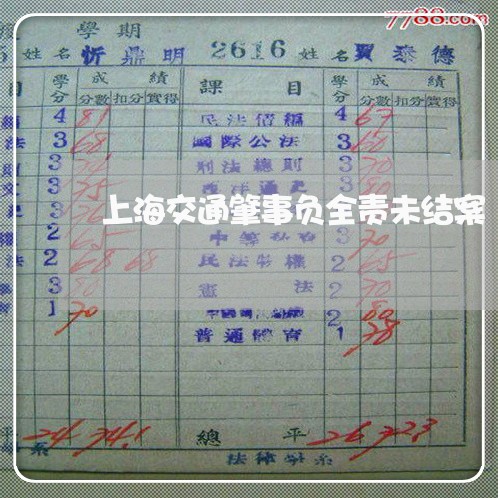 7788.com
學期
姓名 忻鼎明 2616 姓名 賈泰德
目 學分 成績 分數 扣分 實得 課目 學分 成績 分數 扣分 實得
4 81 民法債編 4 67
法 3 68 國際公法 3 60
3 刑法總則 3 70
3 75 3 80
上海交通肇事负全责未结案
2 65 3 70
法 2 68 68 民法物權 2 65
3 80 憲法 2 70
1 70 2 80
普通體育 1 78
平 24 74.1 總平 26 72.3
系 法律學系